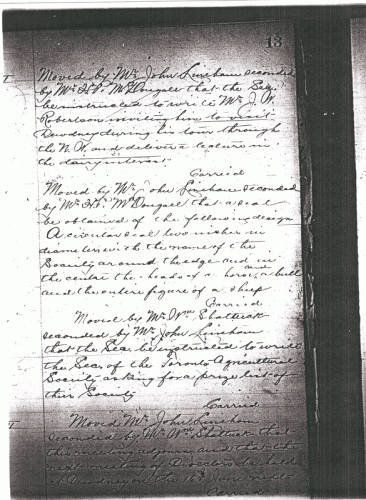 13
Moved by Mr. John Lineham seconded
by Mr. McDougall that the Sec.
be instructed to write Mr. J. W.
Robertson inviting him to visit
Dewdney during his tour through
the N. W. and deliver a lecture in
the dairy interest
Carried
Moved by Mr. John Lineham seconded
by Mr. McDougall that a seal
be obtained of the following design
A circular seal two inches in
diameter with the name of the
Society around the edge and in
the centre the heads of a horse, and a bull
and the entire figure of a sheep
Carried
Moved by Mr. Wm Shattuck
seconded by Mr. John Lineham
that the Sec. be instructed to write
the Secy of the Toronto Agricultural
Society asking for a prize list of
their Society
Carried
Moved Mr. John Lineham
seconded by Mr. Wm Shattuck that
this meeting adjourn and that the
next meeting of Directors be held
at Dewdney on the 16th June
Carried